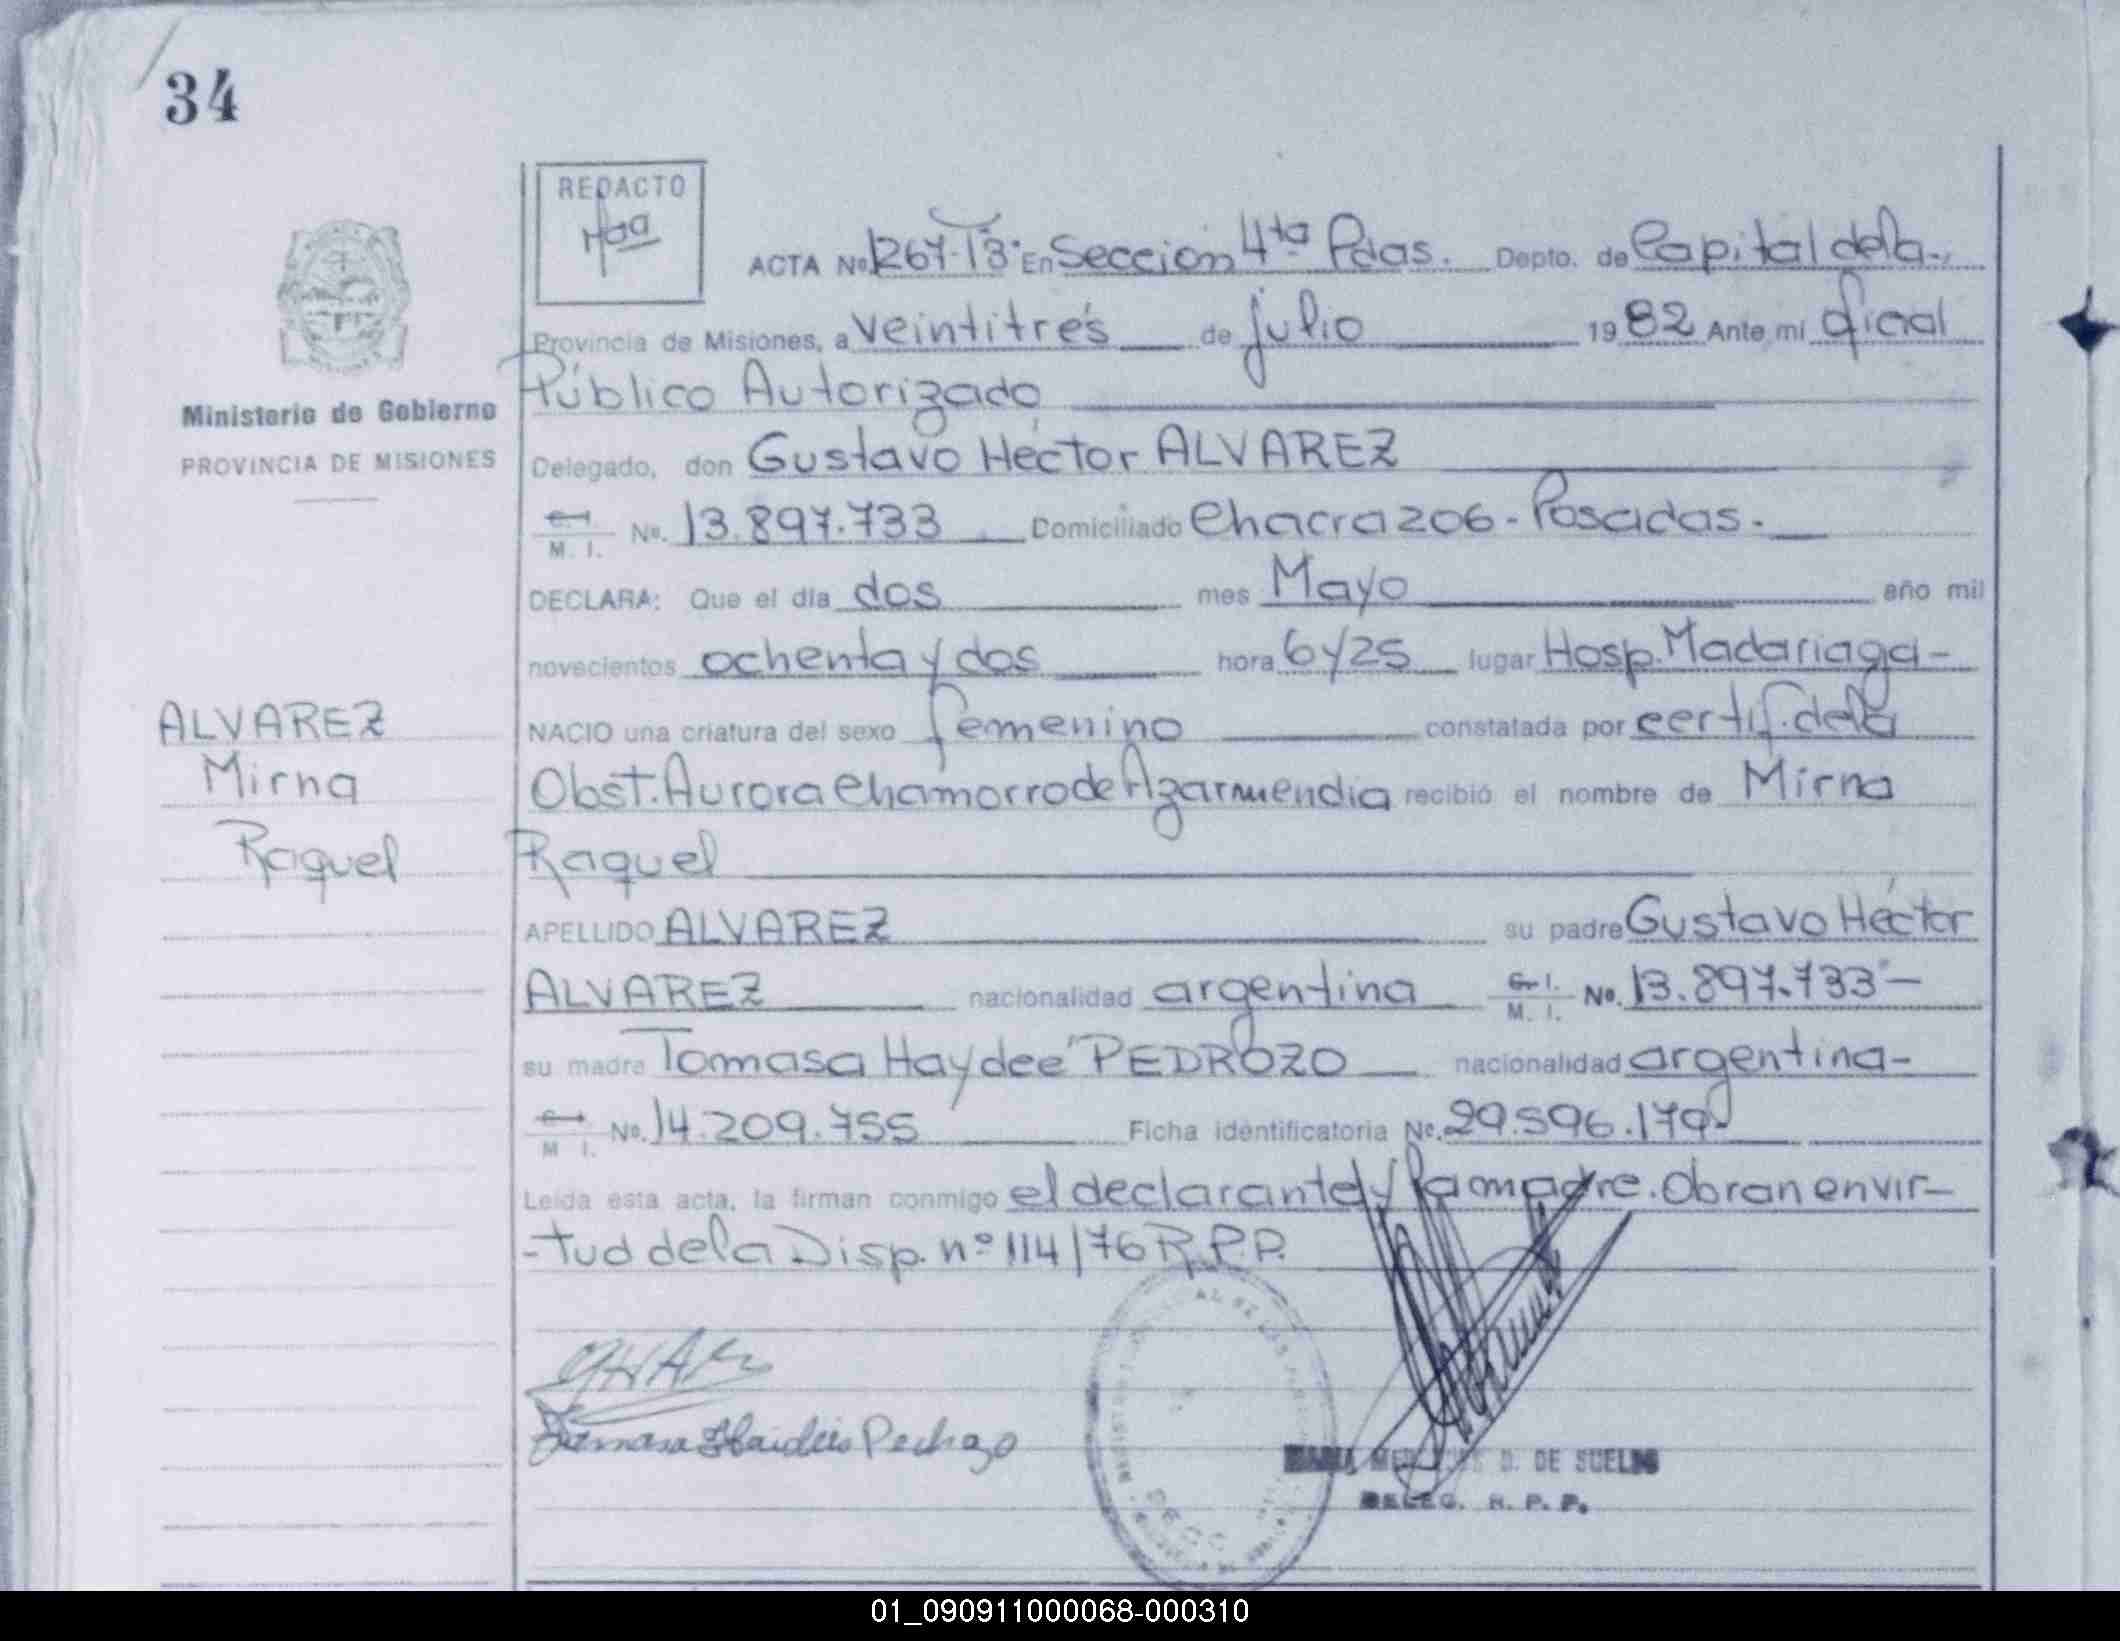 34
REDACTO
ACTA Nº 1267-T3º En Sección 4ta Pdas. Depto. de Capital de la
Provincia de Misiones, a veintitrés de julio 1982 Ante mí Oficial
Público Autorizado
Ministerio de Gobierno
PROVINCIA DE MISIONES
Delegado, don Gustavo Héctor ALVAREZ
M. I. Nº. 13.897.733 Domiciliado Chacra 206 - Posadas.
DECLARA: Que el día dos mes Mayo año mil
novecientos ochenta y dos hora 6 y 25 lugar Hosp. Madariaga-
ALVAREZ
Mirna
Raquel
NACIO una criatura del sexo femenino constatada por certif. de la
Obst. Aurora Chamorro de Azarmendia recibió el nombre de Mirna
Raquel
APELLIDO ALVAREZ su padre Gustavo Héctor
ALVAREZ nacionalidad argentina M. I. Nº. 13.897.733-
su madre Tomasa Haydeé PEDROZO nacionalidad argentina-
M I. Nº. 14.209.755 Ficha identificatoria Nº. 29.596.179
Leída esta acta, la firman conmigo el declarante y la madre. Obran en vir-
-tud de la Disp. nº 114/76 R.P.P.
D. DE SUELDO
DELEG. R. P. P.
01_090911000068-000310